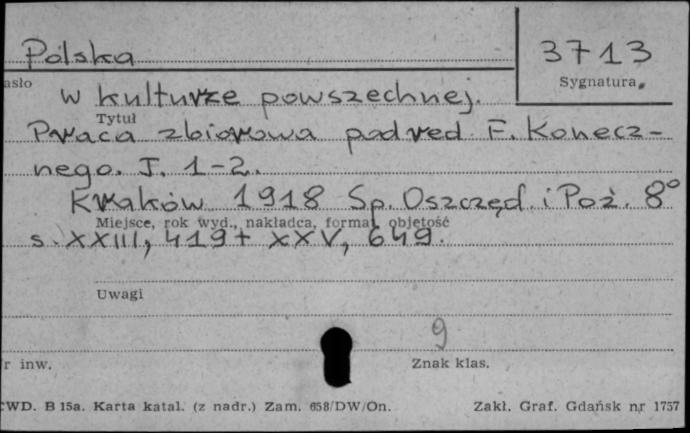 Polska
3713
asło
Sygnatura
w kulturze powszechnej.
Tytuł
Praca zbiorowa pod red. F. Konecz-
nego. T. 1-2.
Kraków 1918 Sp. Oszczęd. i Poż. 8°
Miejsce, rok wyd., nakładca, format, objętość
s. XXIII, 419 + XXV, 649.
Uwagi
9
r inw.
Znak klas.
CWD. B 15a. Karta katal. (z nadr.) Zam. 658/DW/On.
Zakł. Graf. Gdańsk nr 1757